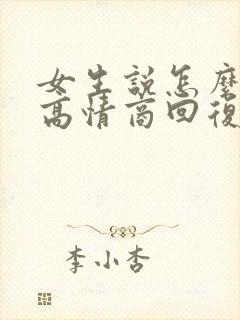 女生說怎麼
高情商回復
李小杏